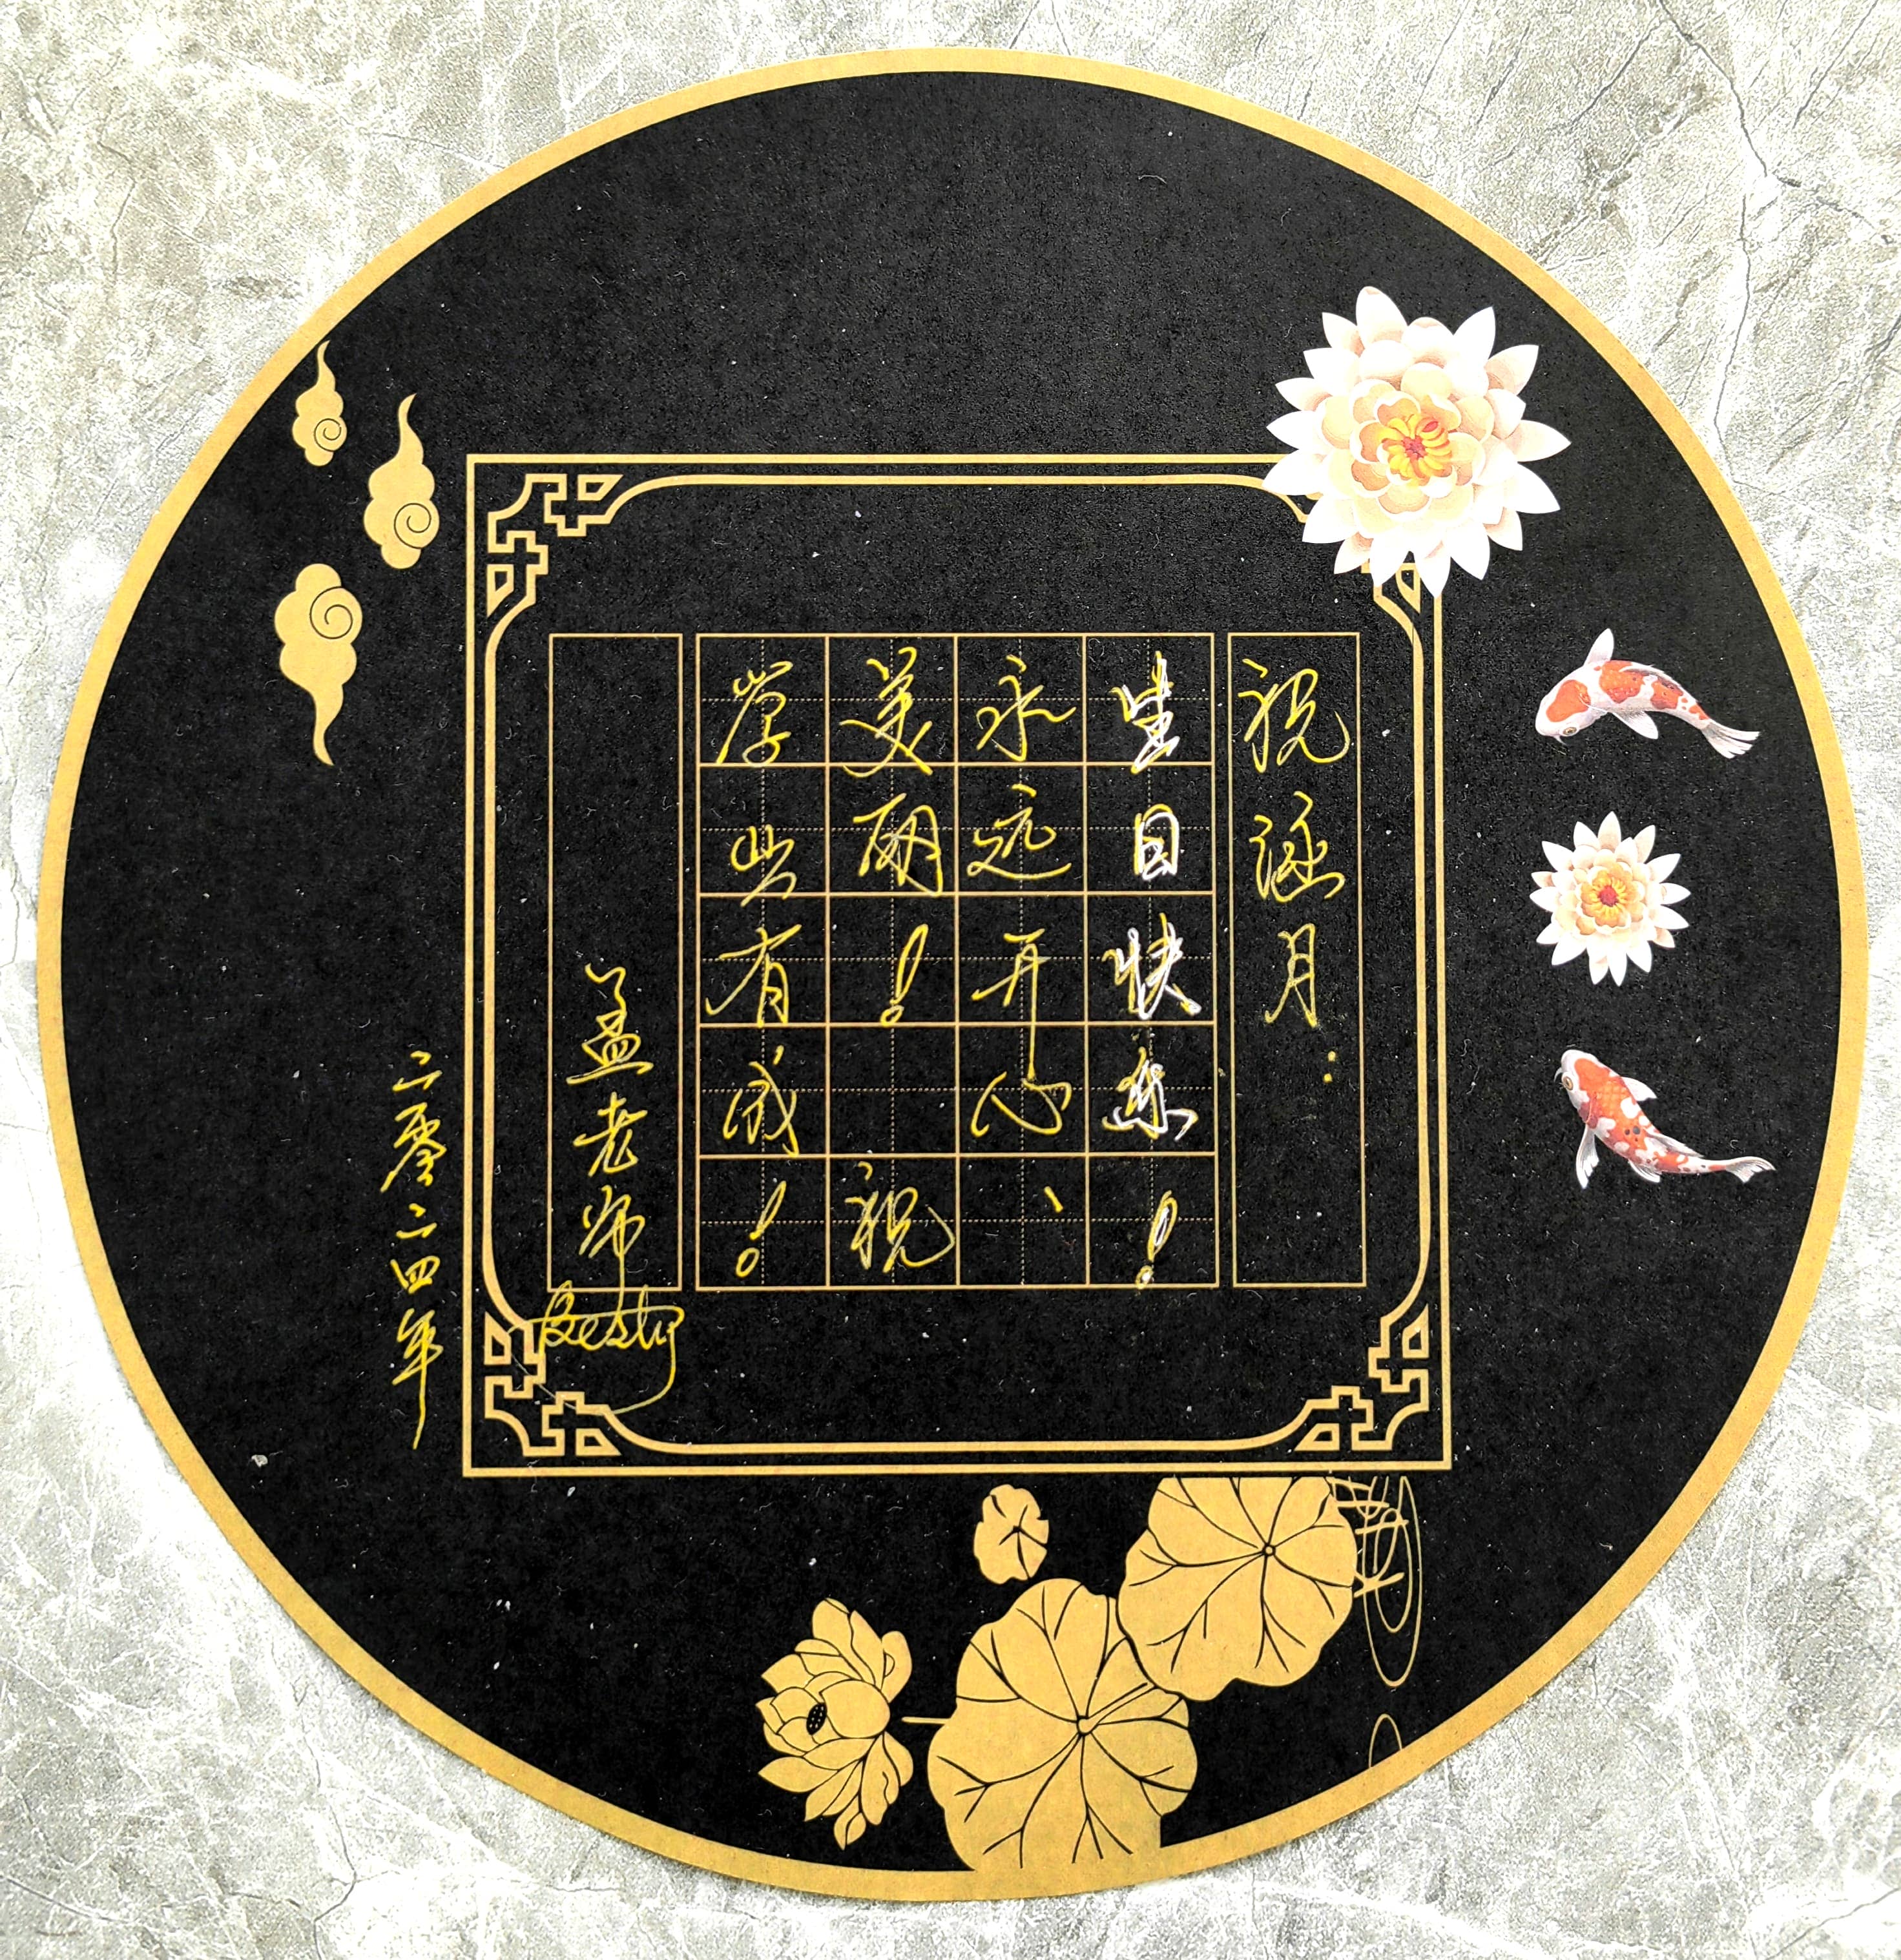 祝涵月：
生日快乐！
永远开心、
美丽！祝
学业有成！
孟老师
Besty
二零二四年